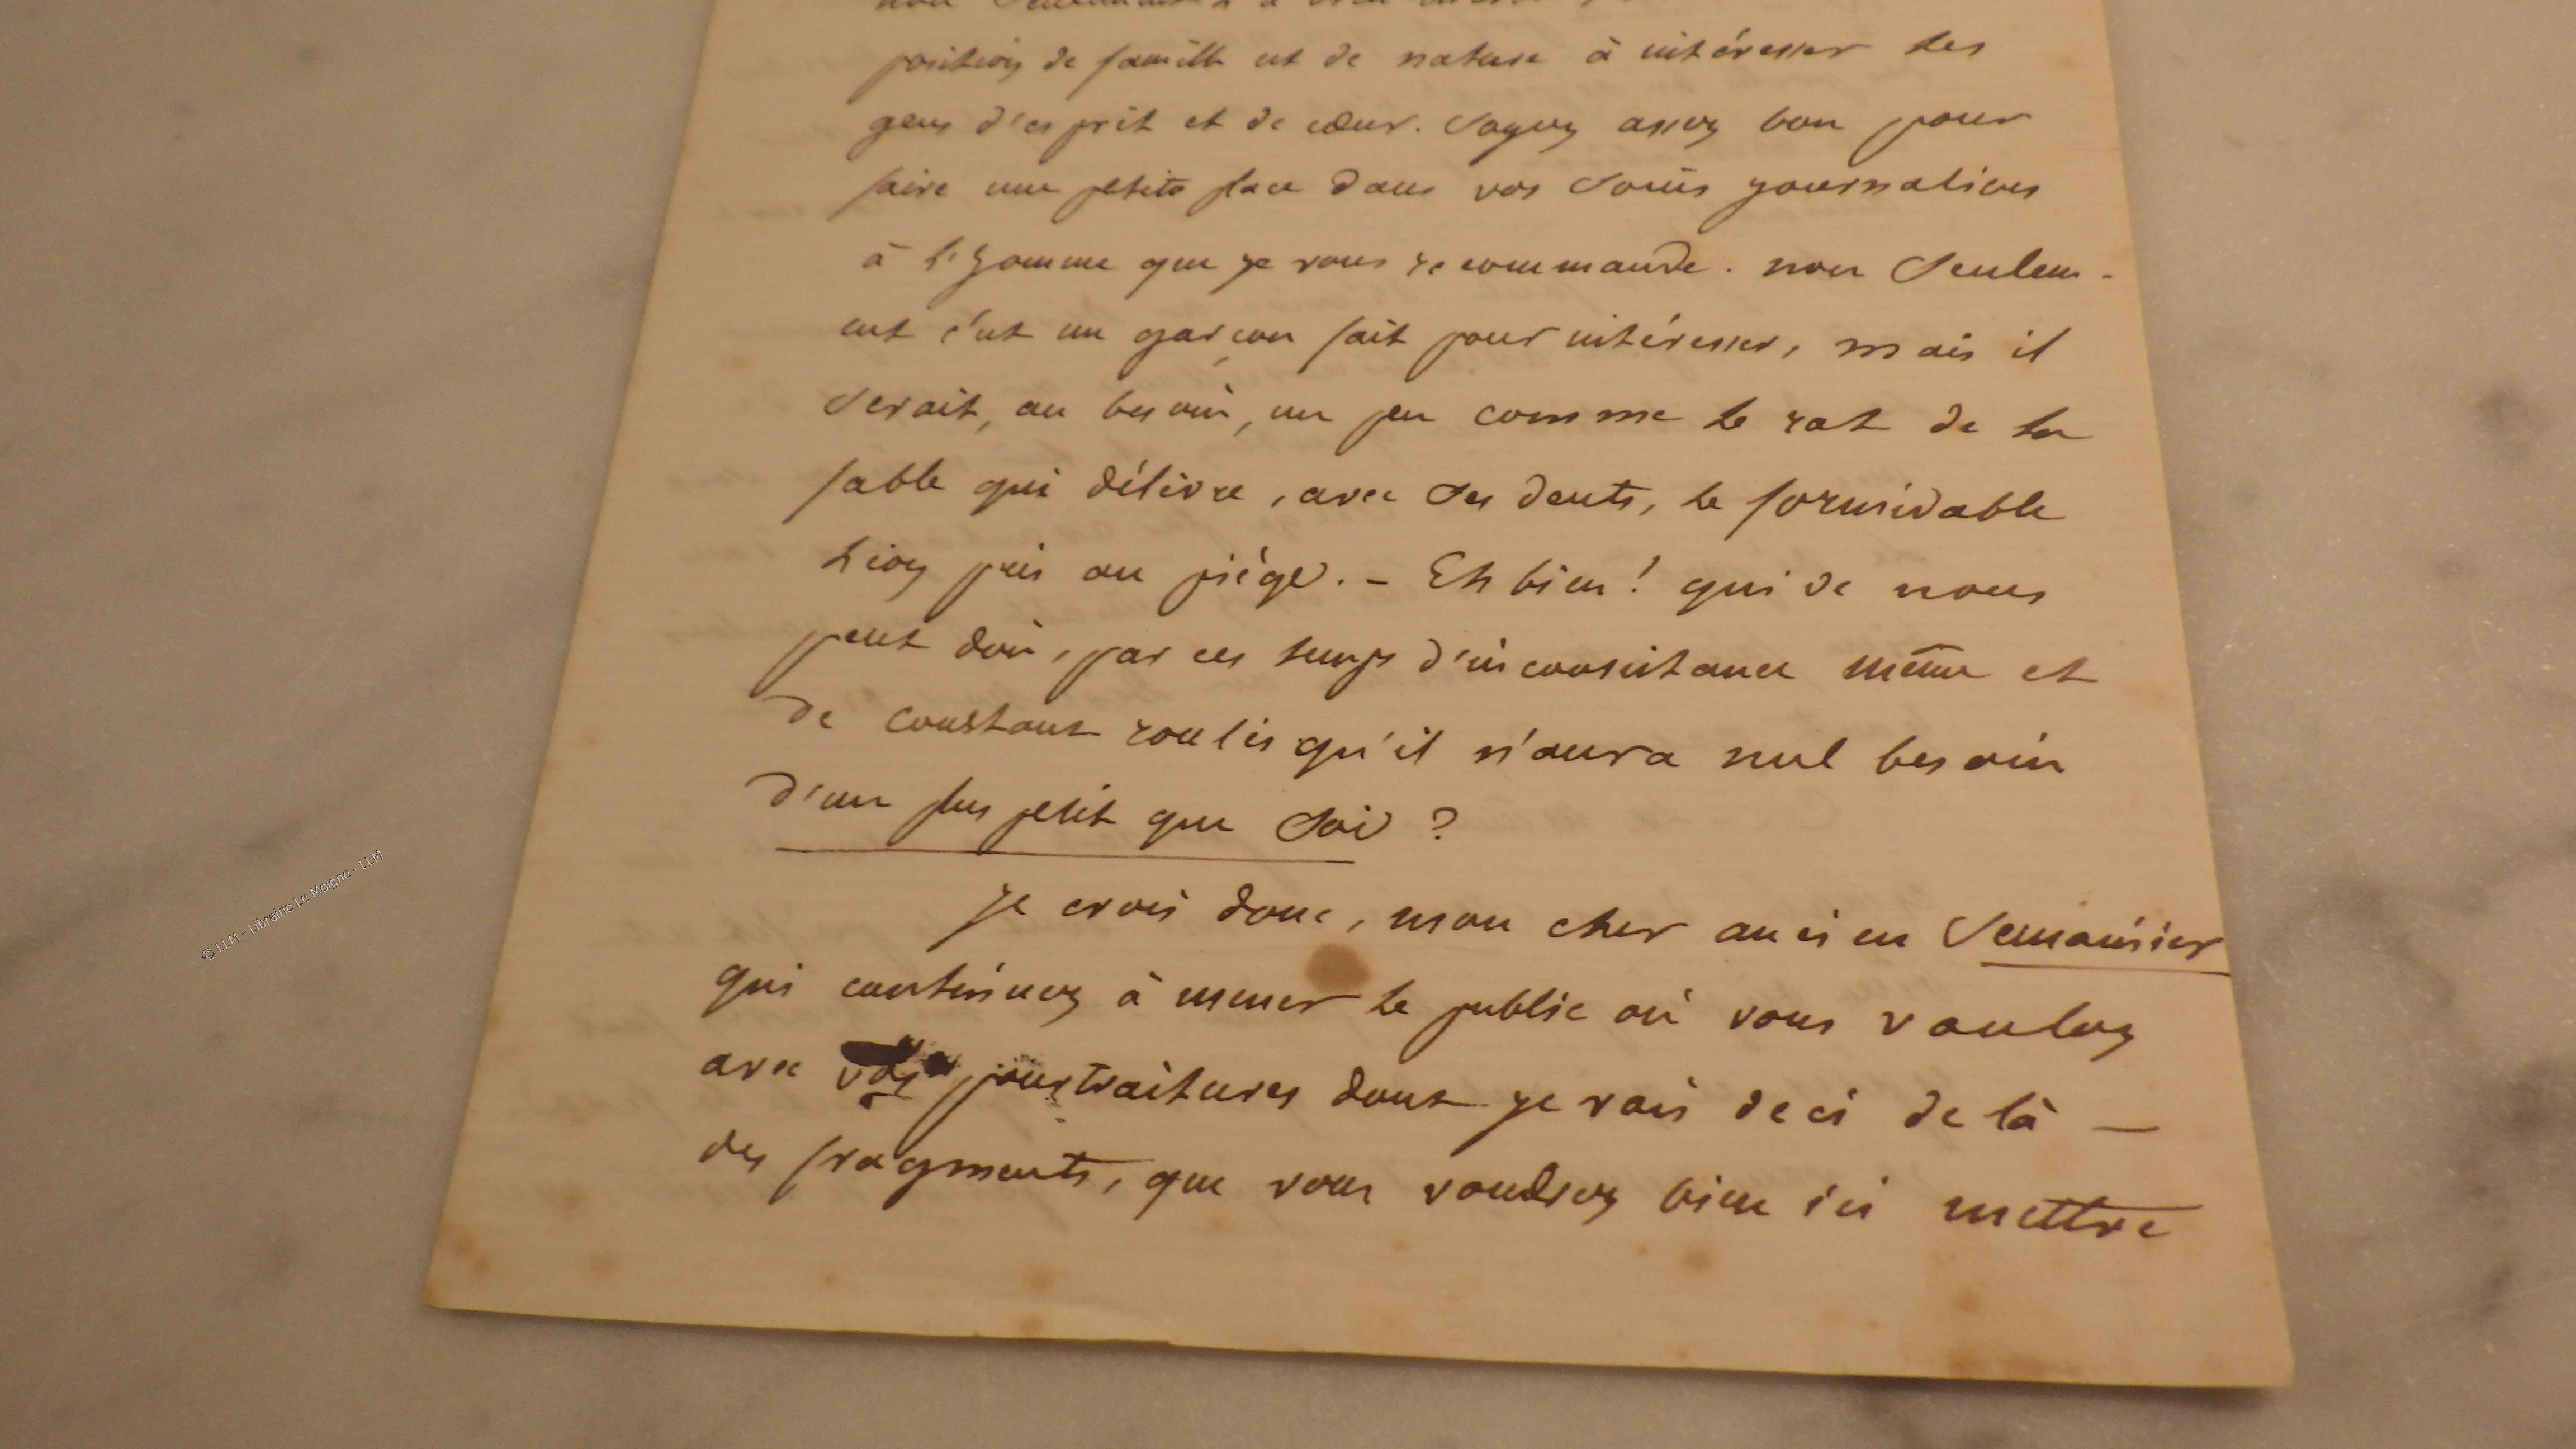 position de famille est de nature à intéresser les
gens d'esprit et de cœur. Soyez assez bon pour
faire une petite place dans vos soucis journaliers
à l'homme que je vous recommande. non seulem-
ent c'est un garçon fait pour intéresser, mais il
serait, au besoin, un peu comme le rat de la
fable qui délivre, avec ses dents, le formidable
Lion pris au piége. - Eh bien! qui de nous
peut dire, par ces temps d'inconsistance même et
de constant roulis qu'il n'aura nul besoin
d'un plus petit que soi ?
je crois donc, mon cher ancien Semainier
qui continuez à mener le public où vous voulez
avec vos pourtraitures dont je vois deci de là —
des fragments, que vous voudrez bien ici mettre
© LLM - Librairie Le Moïgne - LLM